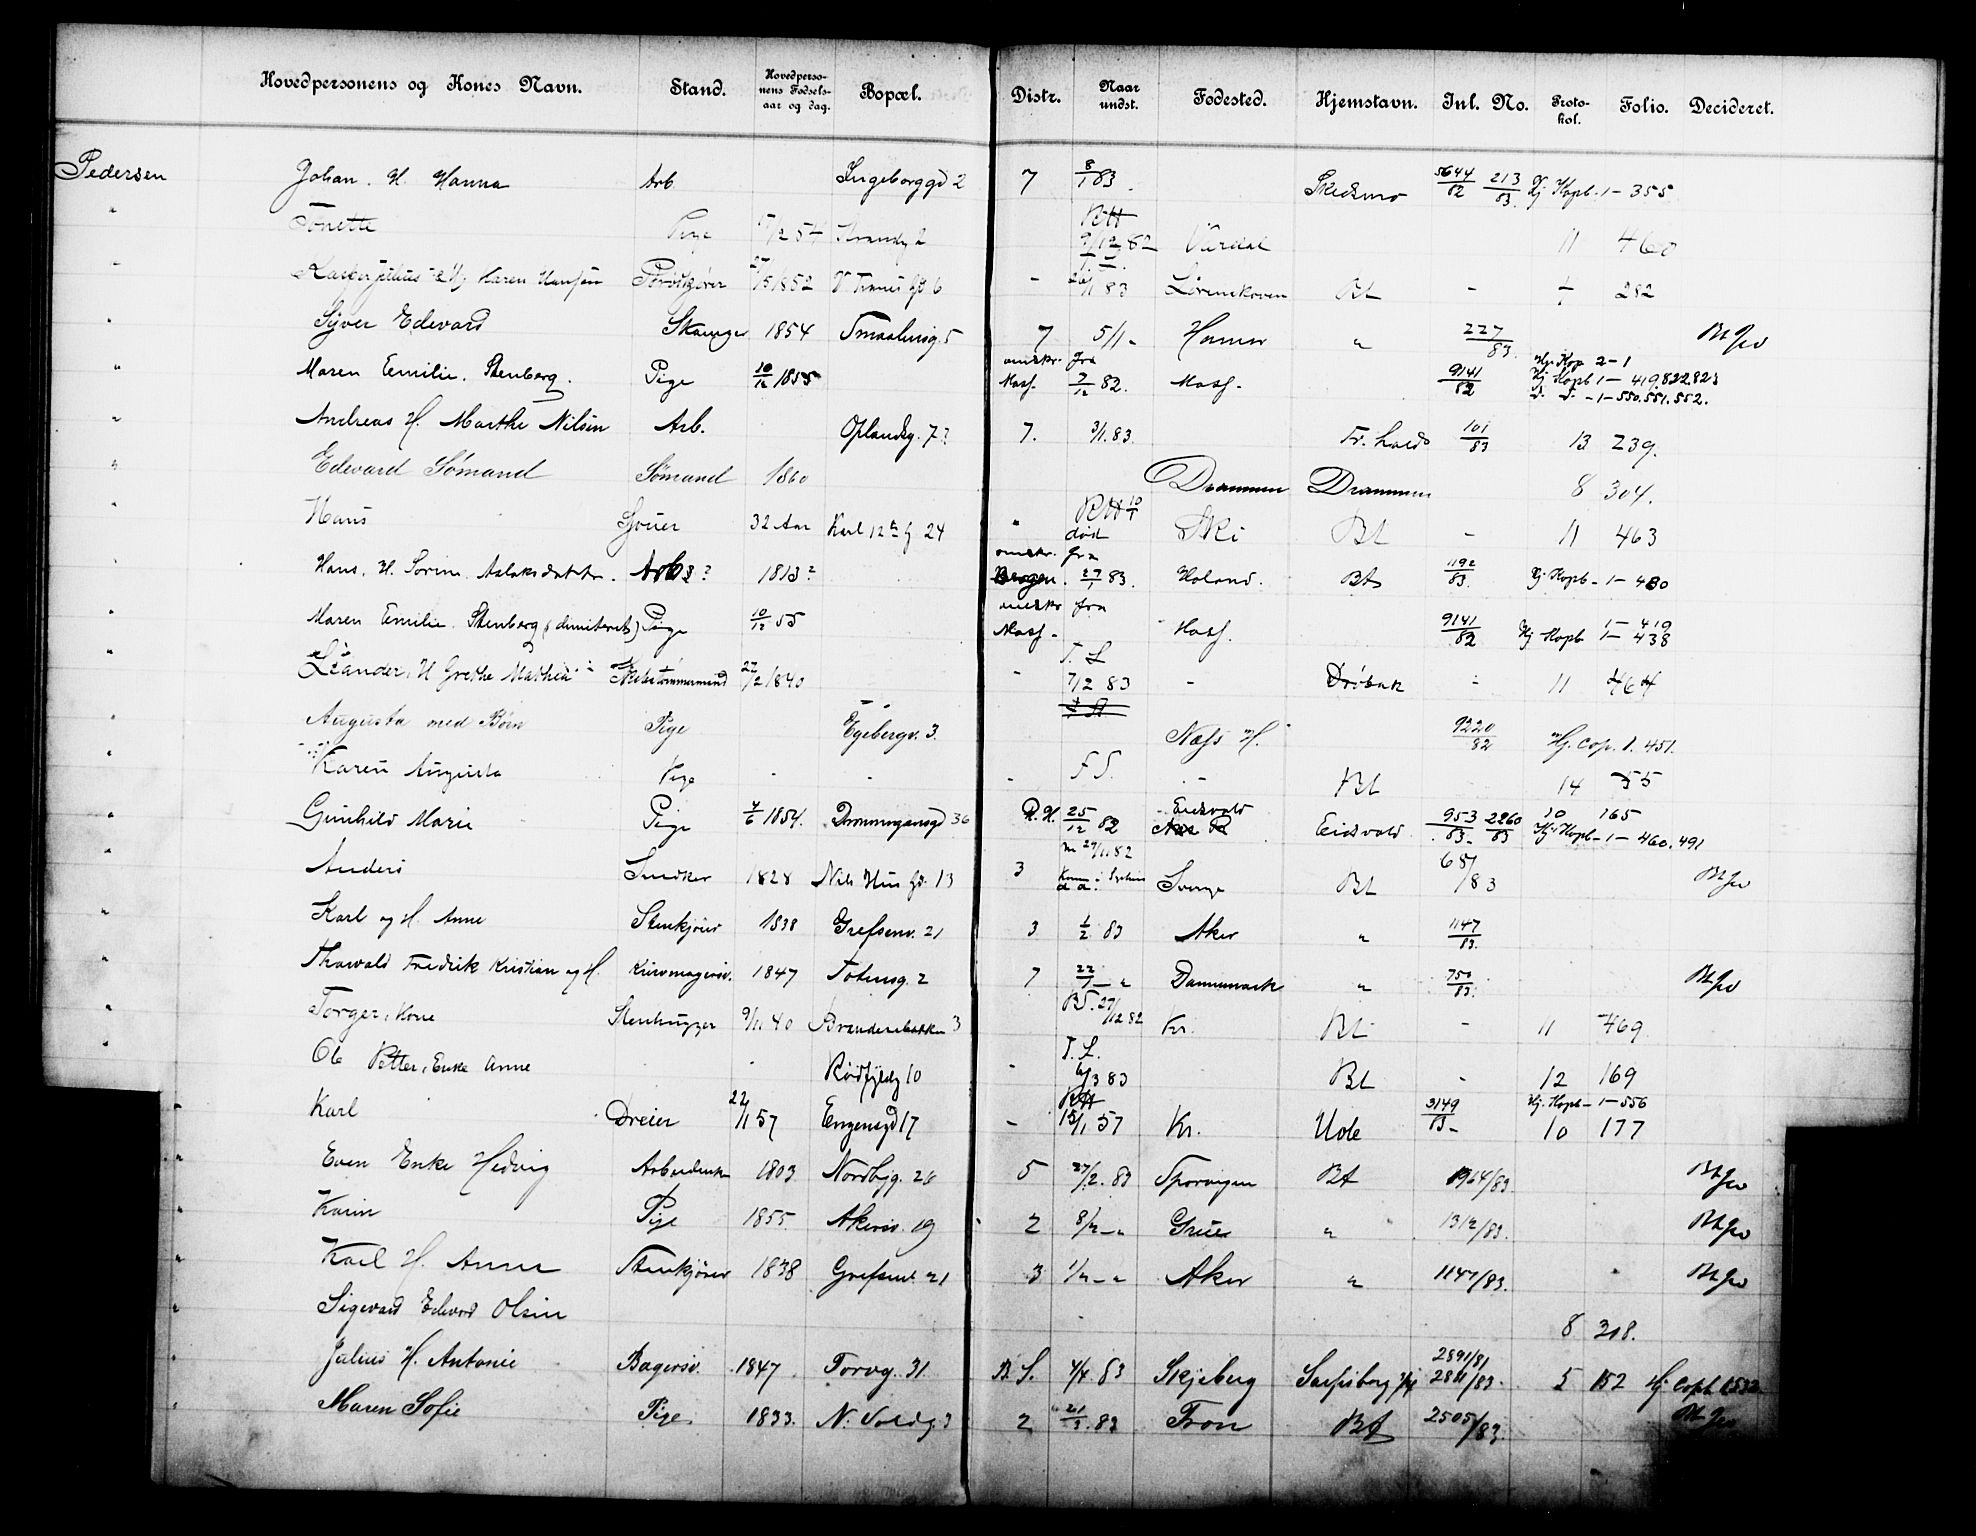 Hovedpersonens og Kones Navn. Stand. Hovedperso-nens Fødsels-aar og dag. Bopæl. Distr. Naar undst. Fødested. Hjemstavn. Inl. No. Proto-kol. Folio. Decideret.
Pedersen Johan. H. Hanna Arb. Ingeborggd 2 7 8/1 83. Skedsmo 5644/82 213/83. Hj. Kopb. 1 – 355
" Tonette Pige /2 54 2 R.H. 9/12 82 11 460
" Julius Karen Hansen 27/5 1852 6 – 26/1 83 Lørenskoven Bt – 282
" Syver Edevard 1854 Smaalensg. 5 7 5/1 " Hamar " 227/83. Bt Jev
" Maren Emilie. Stenberg. Pige 10/12 1855 omskr. fra Moss. 7/12 82. Moss. 9141/82 Hj. Kop 2–1 Hj. Kopb 1 – 419.822.823 d. d. – 1 – 550.551.552.
" Andreas H. Marthe Nilsen Arb. Oplandsg. 7? 7. 3/1. 83. Fr. hald 101/83 13 239.
" Edevard Sømand Sømand 1860 Drammen Drammen 8 304.
" Hans 32 Aar Karl 12te g 24 " R.H. 10/1 død Ski Bt – 11 463
Hans. H. Sorine. Aslaksdatter. Arb? 1813? omskr. fra 27/1 83. Høland. Bt 1192/83. Hj. Kopb – 1 – 480
" Maren Emilie. Stenberg (dimiteret) Pige 10/12 55 omskr fra Moss – Moss. 9141/82 Hj Kopb 1 – 419 1 – 438
" Leander, H Grethe Mathea 27/2 1840 – T. L 7/2 83 – Drøbak – 11 464
" Augusta med Børn Pige Egebergv. 3. Næss H. 9220/82 Hj. cop. 1. 451.
" Karen Augusta Pige – – – F S. – Bt – 14 35
" Gunhild Marie Pige 4/6 1854. Dronningensgd 36 R. H. 25/12 82 Eidsvold Eidsvold 953/83. 2260/83 10 165 Hj. Kopb – 1 – 460. 491
" Anders Snedker 1828 Nils Hus gd. 13 3 27/11 82 Sverige Bt 681/83 Bt Jev
" Karl og H. Anne Stenkjører 1838 Grefsenv. 21 3 1/2 83 Aker " 1147/83.
" Thorvald Fredrik Kristian og H. Kurvmagersv. 1847 Totensg. 2 7 22/1 – " Dannemark " 750/83. Bt Jev
" Torger, Kone Stenhugger 9/11 40 Brandenbakken 3 B.S. 27/12 82 Kr. Bt – 11 469
" Ole Petter, Enke Anne – – Rødfyldg 10 – T. L. 6/3 83 Bt – 12 169
" Karl Dreier 22/1 57 Engensgd 17 – R.H. 15/1 57 Kr. Ude 3149/83 – Hj. Kopb – 1 – 556 10 177
" Even Enke Hedvig Arbeiderske 1803 Nordbyg. 28 5 27/2. 83 Bt 1964/83. Bt Jev
" Karin Pige 1855 Akersv. 19 2 8/2 – " Grue " 1312/83. Bt Jev
" Karl H. Anne Stenkjører 1838 Grefsenv. 21 3 1/2 – " Aker " 1147/83. Bt Jev
" Sigevard Edevard Olsen 8 318.
" Julius H. Antonie Bagersv. 1847 Torvg. 31 B. S. 4/4. 83 Skjeberg Sarpsborg 2891/81 2811/83. 5 152 Hj. Copb. 1.532.
" Maren Sofie Pige 1833. N. Voldg. 3 2 21/3. 83 Fron Bt 2505/83. Bt Jev